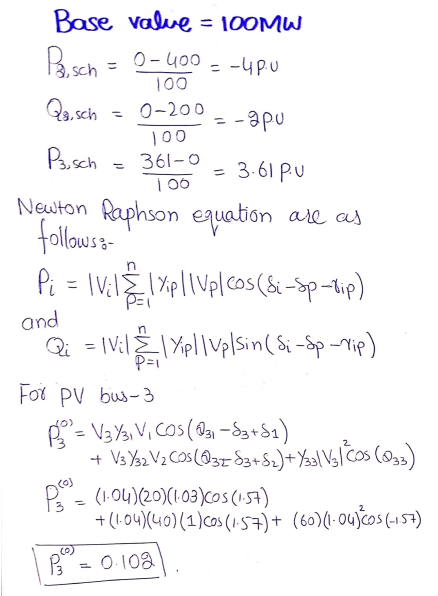 Base value = 100MW
P2,sch = 0-400/100 = -4 P.U
Q2,sch = 0-200/100 = -2pU
P3,sch = 361-0/100 = 3.61 P.U
Newton Raphson equation are as
follows:-
Pi = |Vi| Σ(P=1 to n) |Yip||Vp|cos(δi-δp-γip)
and
Qi = |Vi| Σ(P=1 to n) |Yip||Vp|sin(δi-δp-γip)
For PV bus-3
P3^(0) = V3Y31V1 cos(θ31-δ3+δ1)
+ V3Y32V2 cos(θ32-δ3+δ2)+Y33|V3|² cos(θ33)
P3^(0) = (1.04)(20)(1.03)cos(1.57)
+(1.04)(40)(1)cos(1.57)+ (60)(1.04)²cos(-1.57)
P3^(0) = 0.102.